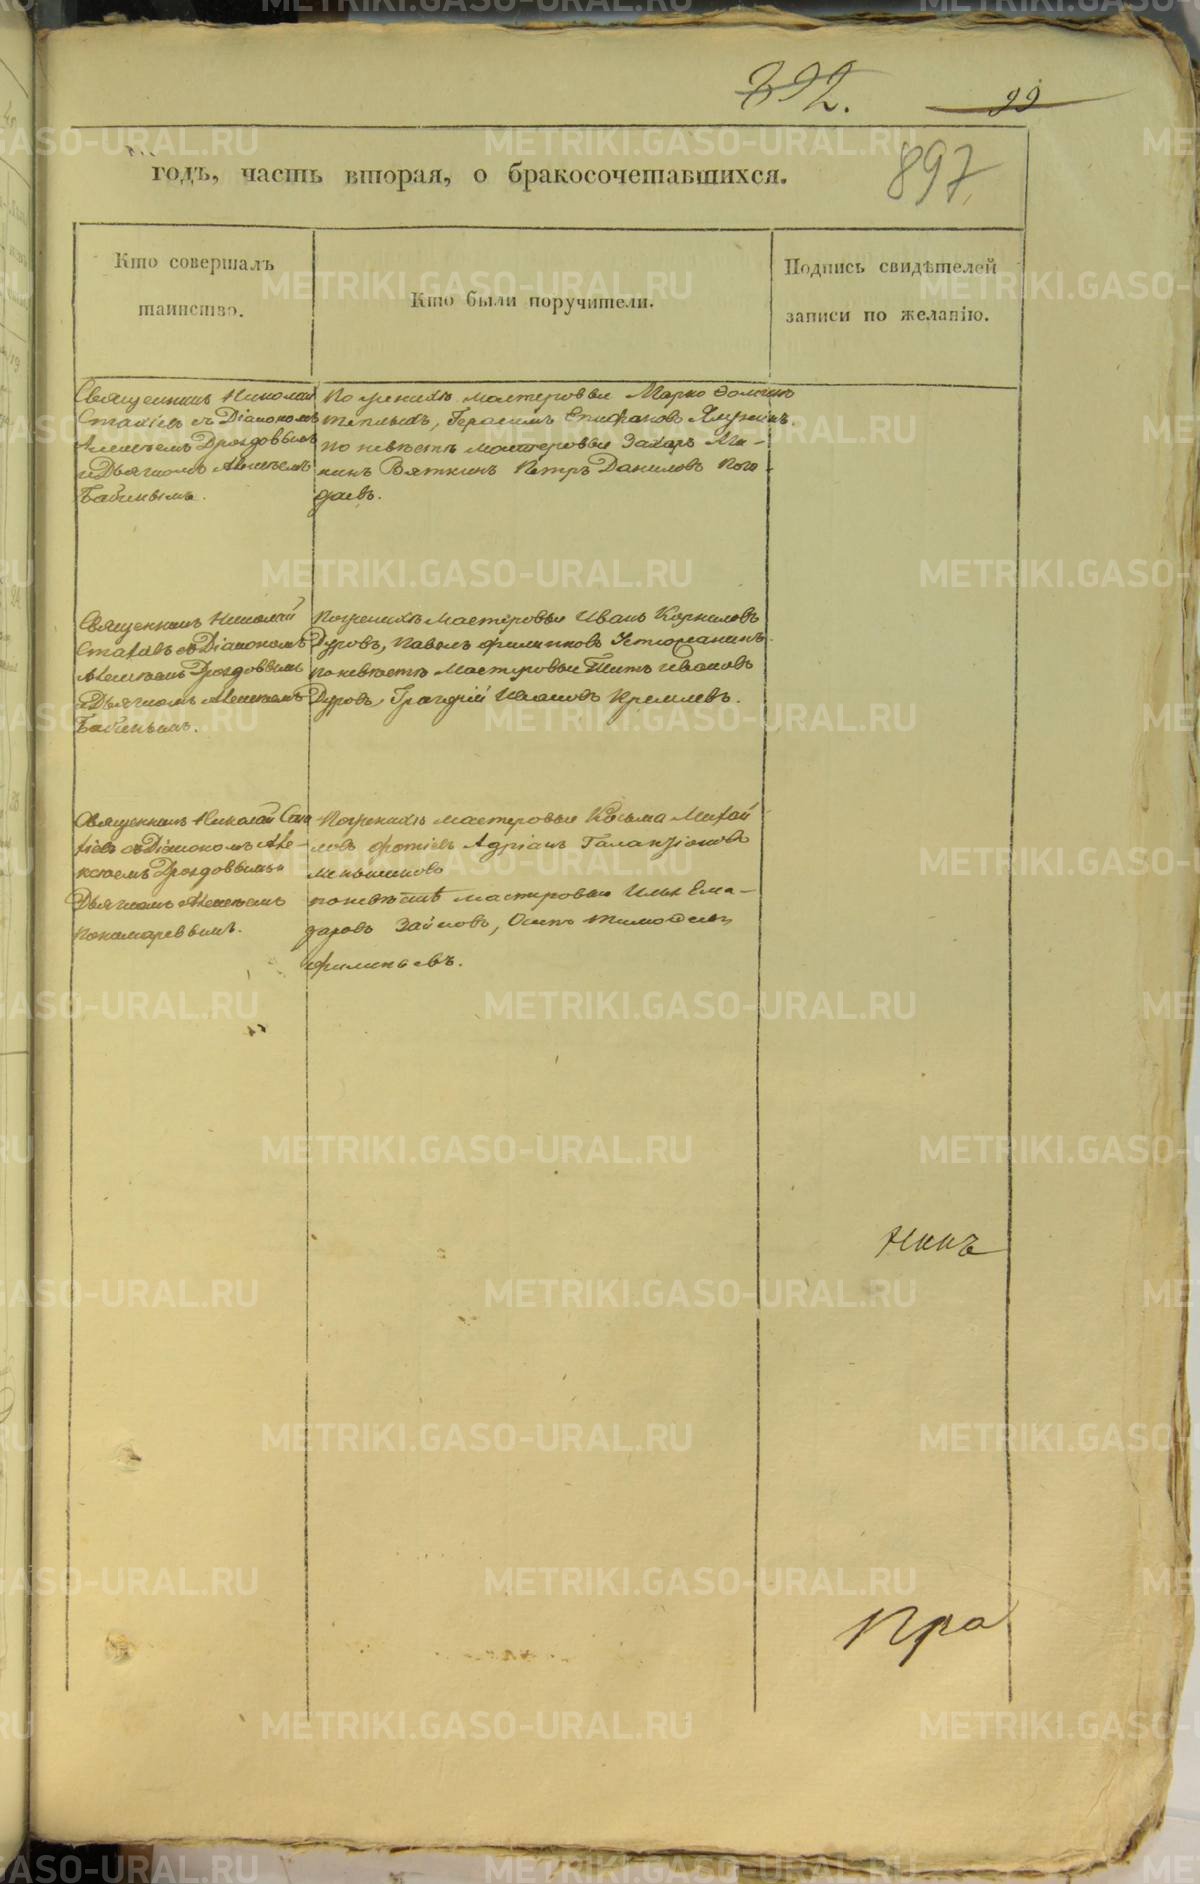 392. 99
897
годъ, часть вторая, о бракосочетавшихся.
Кто совершалъ
таинство.
Кто были поручители.
Подпись свидѣтелей
записи по желанію.
Священникъ Николай
съ Діакономъ
Алексѣемъ Дроздовымъ
и Дьячкомъ Алексѣемъ
Бабинымъ.
По женихѣ мастеровые Марко
Герасимъ Епифановъ
по невѣстѣ мастеровые Захаръ
Вяткинъ Петръ Даниловъ Пого
даевъ.
Священникъ Николай
съ Діакономъ
Алексѣемъ Дроздовымъ
и Дьячкомъ Алексѣемъ
Бабинымъ.
По женихѣ мастеровые Иванъ Корниловъ
Дуровъ, Павелъ Филиповъ Устюжанинъ.
по невѣстѣ мастеровые Титъ Ивановъ
Дуровъ, Григорій Ивановъ Кремлевъ.
Священникъ Николай
съ Діакономъ Але-
ксѣемъ Дроздовымъ и
Дьячкомъ Алексѣемъ
Пономаревымъ.
По женихѣ мастеровые Косьма Михай
ловъ Адріанъ Галактіоновъ
Меньшиковъ
по невѣстѣ мастеровые Илья
Осипъ Тимофеевъ
METRIKI.GASO-URAL.RU